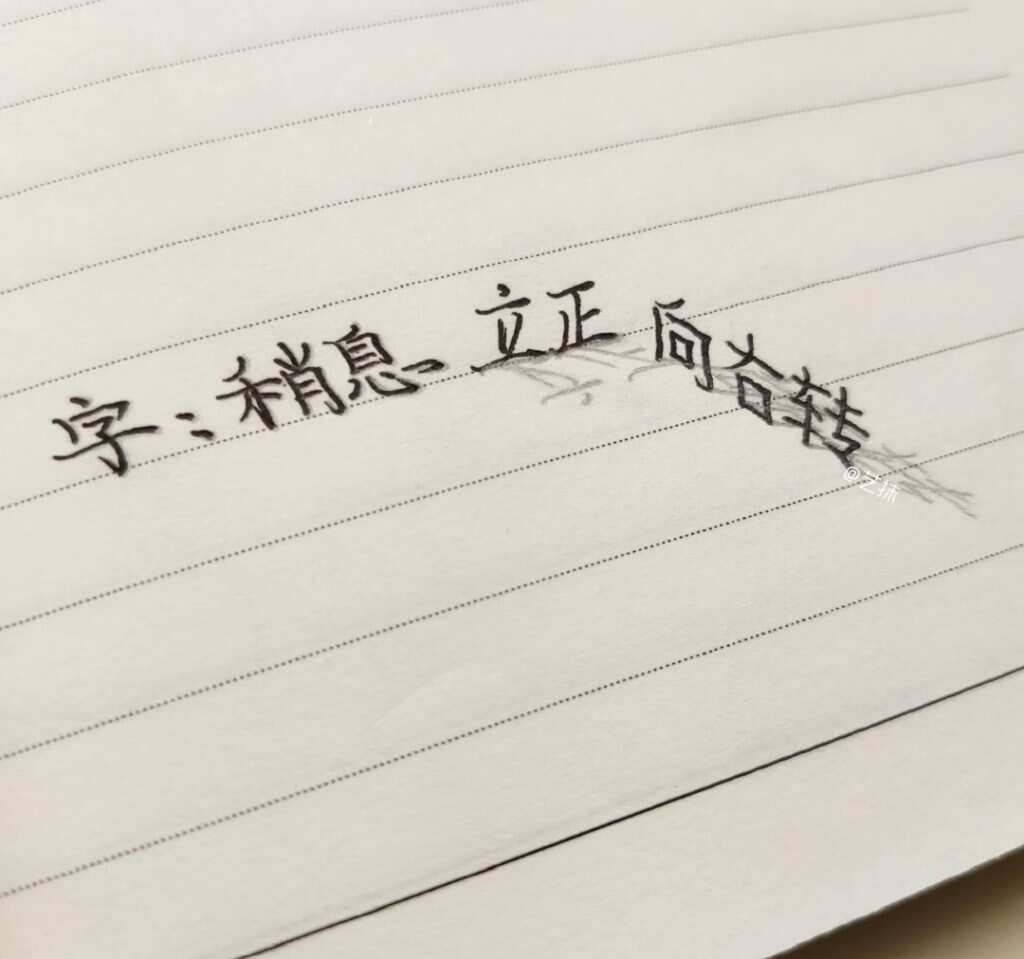 字：稍息、立正 向右转
@艺抹